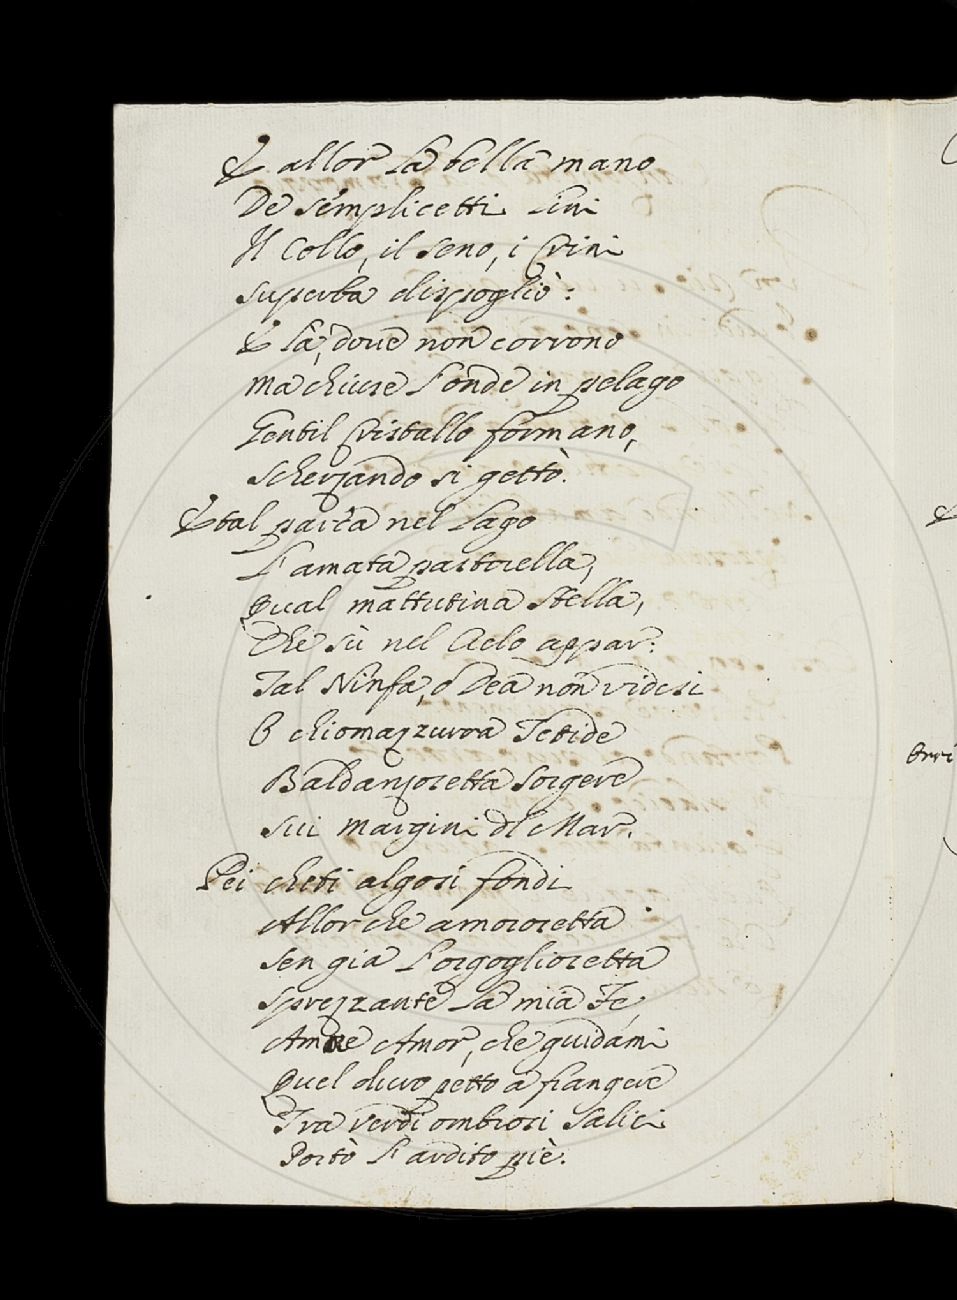 E allor la bella mano
De semplicetti Lini
Il Collo, il seno, i Crini
superba dispogliò:
E là, doue non corrono
ma chiuse l'onde in pelago
Gentil Cristallo formano,
scherzando si gettò.
E tal parea nel Lago
L'amata pastorella,
Qual mattutina Stella,
Che sù nel Cielo appar:
Tal Ninfa, o Dea non videsi
O chiomazzurra Tetide
Baldanzosetta Sorgere
sui margini del Mar.
Pei cheti algosi fondi
Allor che amorosetta
sen gia l'orgogliosetta
sprezzante la mia Fe,
Amor, che guidami
Quel duro petto a frangere
Tra verdi ombrosi Salici
Portò l'ardito piè.